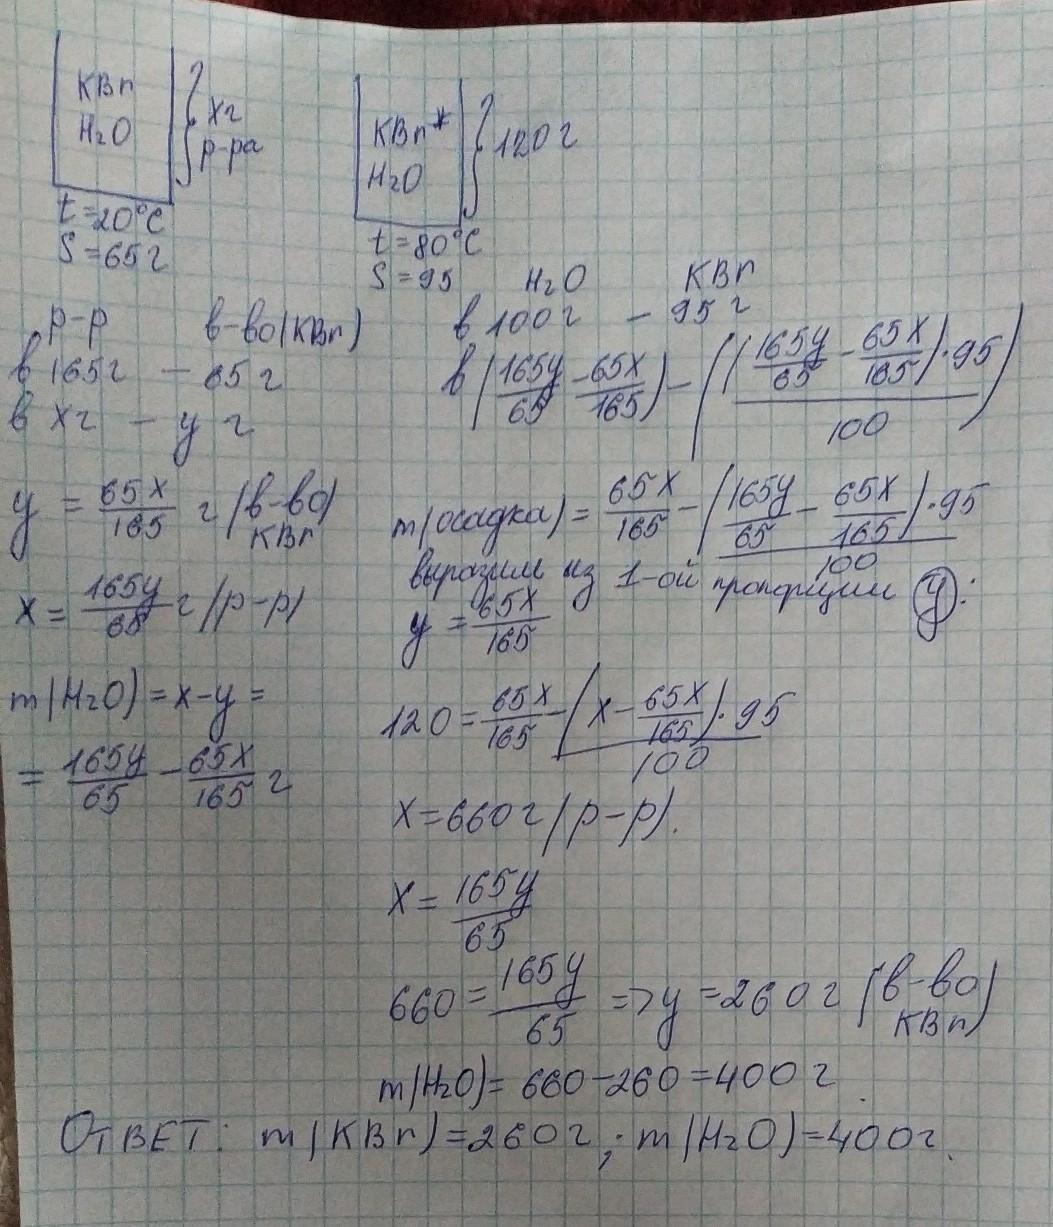 KBr
H₂O
xг
р-ра
t=20°C
S=65г
KBr*
H₂O
120г
t=80°C
S=95
р-р в-во(KBr)
в 165г – 65г
в xг – y г
y = 65x/165 г (в-во)
KBr
x = 165y/65 г (р-р)
m(H₂O) = x-y =
= 165y/65 - 65x/165 г
H₂O KBr
в 100г – 95г
в (165y/65 - 65x/165) – ((165y/65 - 65x/165)·95/100)
m(осадка) = 65x/165 - (165y/65 - 65x/165)·95/100
выразим из 1-ой пропорции y:
y = 65x/165
120 = 65x/165 - (x - 65x/165)·95/100
x=660г (р-р).
x = 165y/65
660 = 165y/65 => y = 260г (в-во)
KBr
m(H₂O) = 660-260=400г
Ответ: m(KBr)=260г; m(H₂O)=400г.